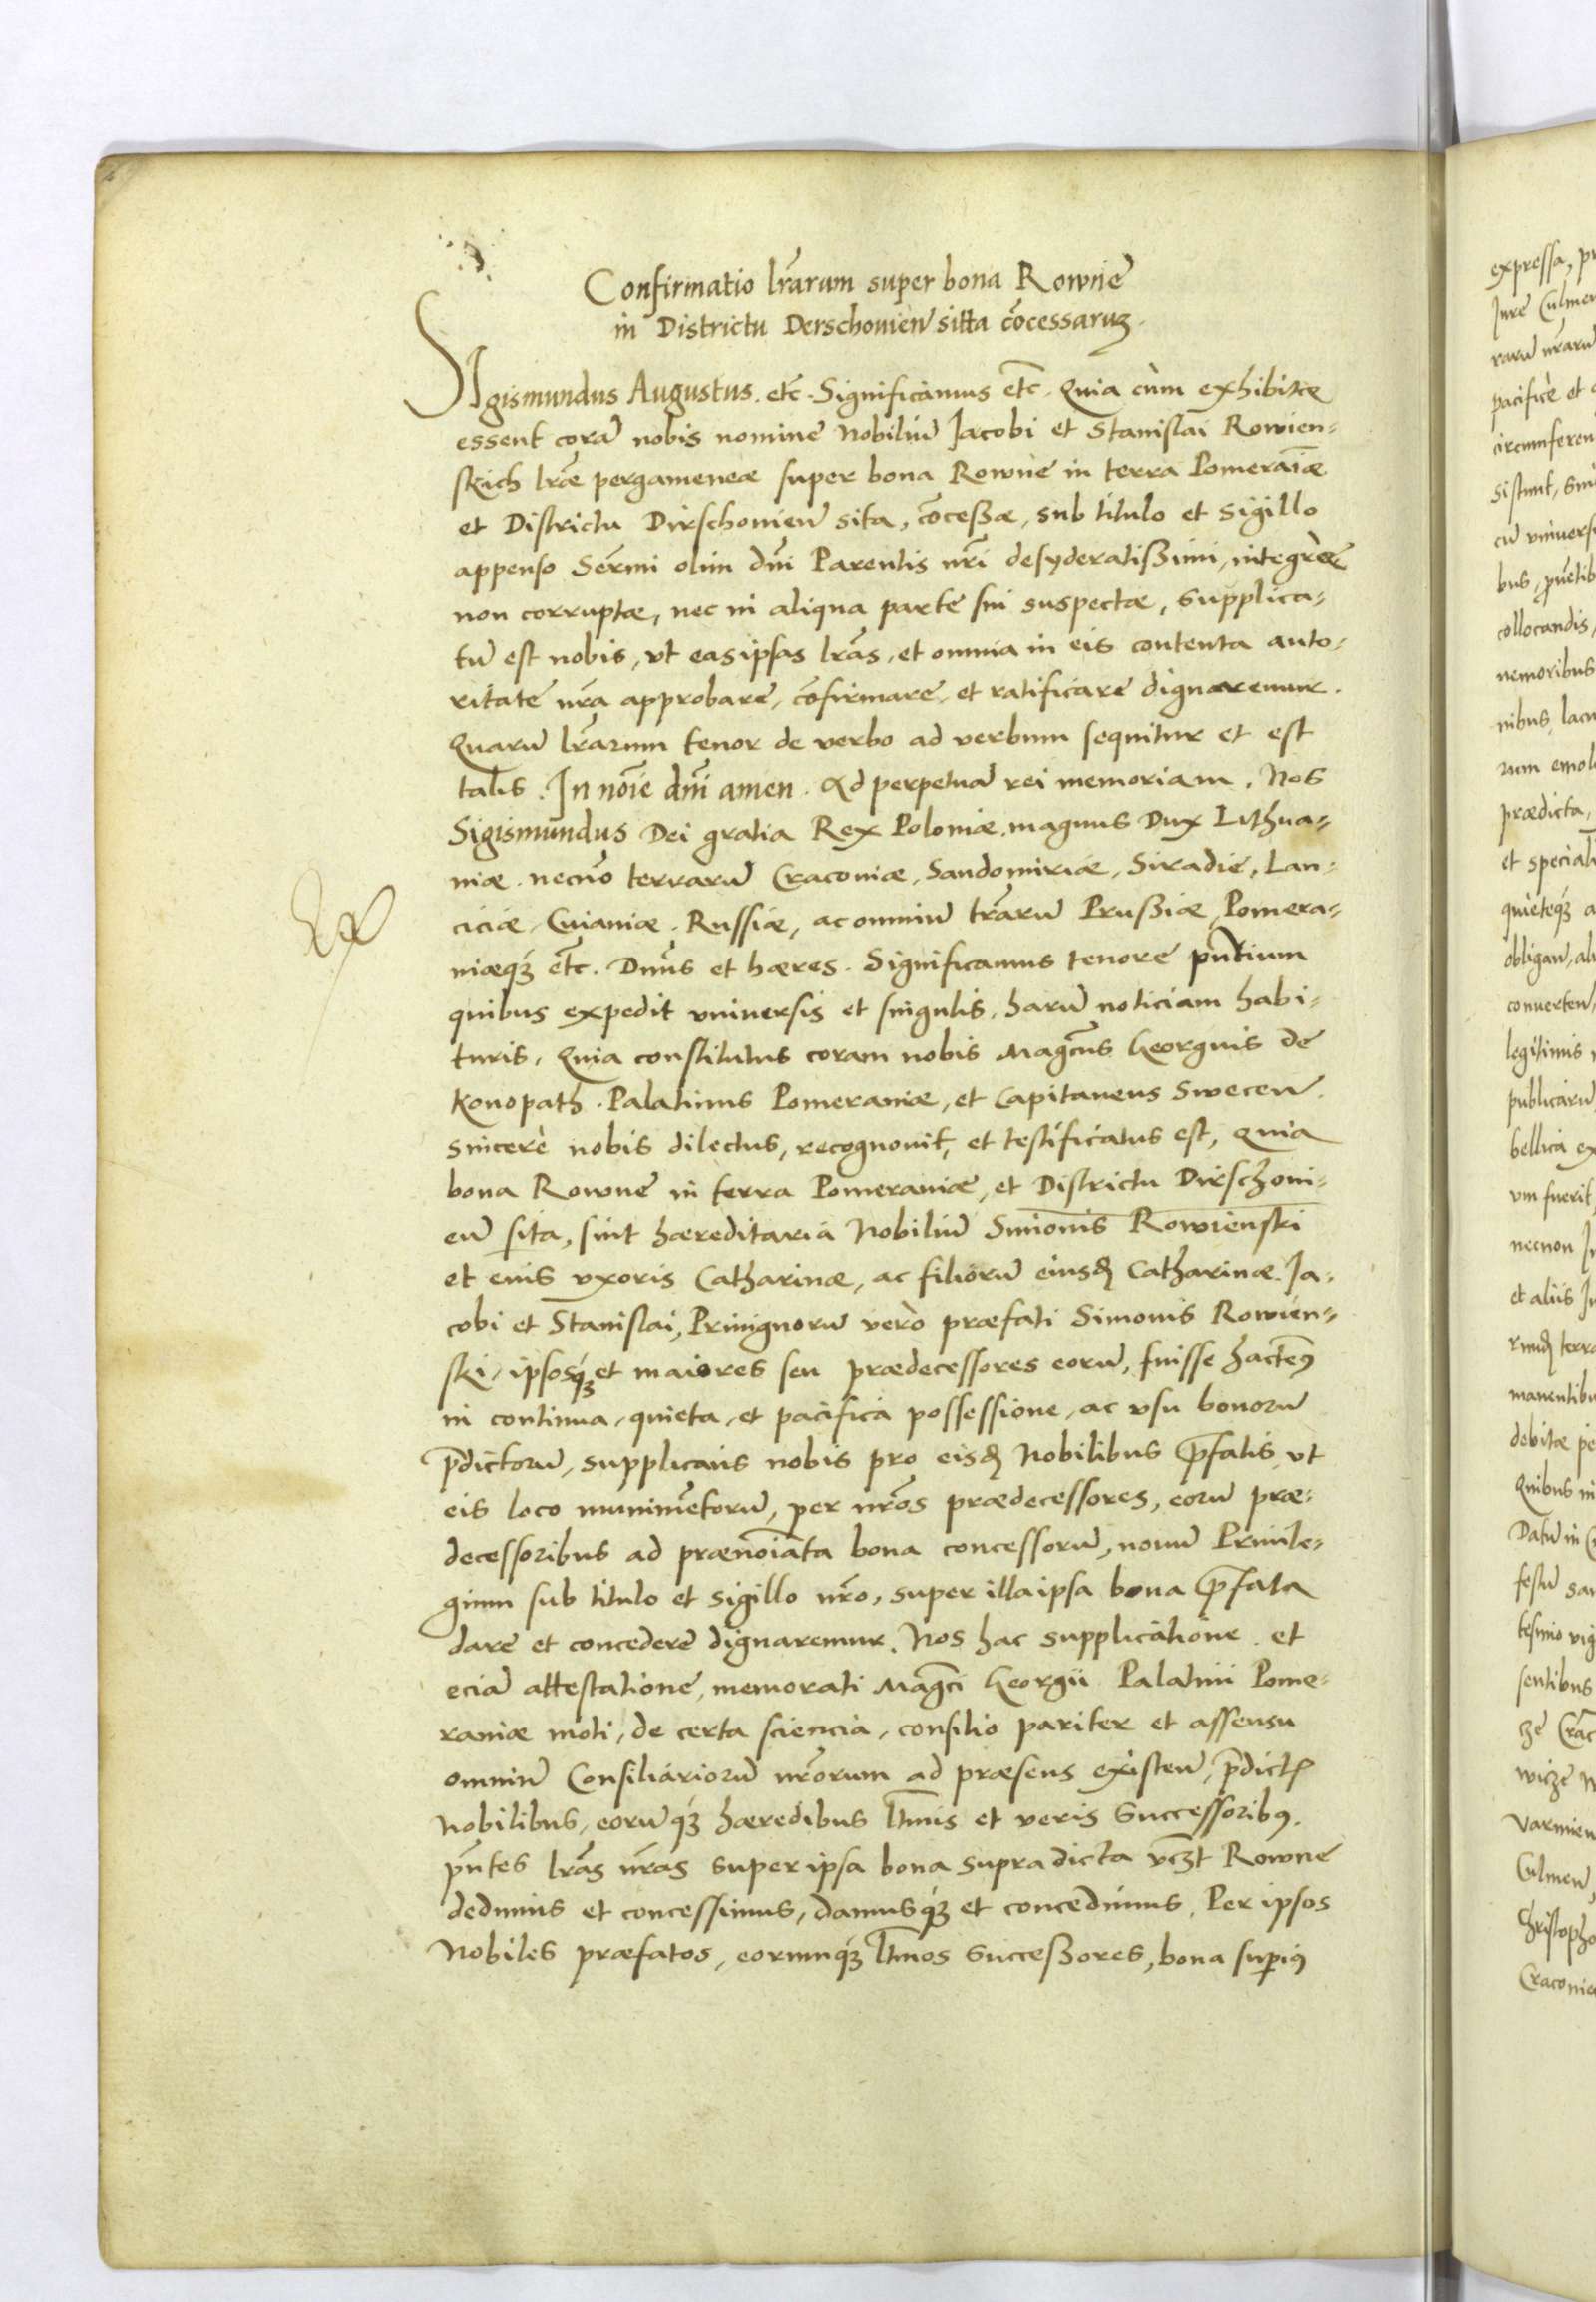 Confirmatio lr̃arum super bona Rowne
in Districtu Derschouien̄ sitta cōcessaruʒ.
SIgismundus Augustus. etc̄. Significamus etc̄. Quia cùm exhibitæ
essent corā nobis nomine Nobiliū Jacobi et Stanislai Rowien=
skich lr̃æ pergameneæ super bona Rowne in terra Pomeraīæ
et Districtu Dirschouien̄ sita, cōcessæ, sub titulo et Sigillo
appenso Ser̃mi olim dn̄i Parentis nr̃i desyderatissimi, integræ
non corruptæ, nec in aliqua parte sui suspectæ, Supplica=
tū est nobis, vt eas ipsas lr̃as, et omnia in eis contenta auto=
ritate nr̃a approbare, cōfirmare, et ratificare dignaremur.
Quarū lr̃arum tenor de verbo ad verbum sequitur et est
talis. In nōie dn̄i amen. Ad perpetuā rei memoriam. Nos
Sigismundus Dei gratia Rex Poloniæ, magnus Dux Lithua=
niæ. necnō terrarū Cracoviæ, Sandomiriæ, Siradiē, Lan=
ciciæ, Cuiaviæ, Russiæ, ac omniū tr̃arū Prussiæ, Pomera=
niæqʒ etc̄. Dn̄us et hæres. Significamus tenore pn̄tium
quibus expedit vniuersis et singulis, harū noticiam habi=
turis, Quia constitutus coram nobis Magcūs Georgius de
Konopath, Palatinus Pomeraniæ, et Capitaneus Swecen̄.
sincerè nobis dilectus, recognouit, et testificatus est, quia
bona Rowne in terra Pomeraniæ, et Districtu Dirschoui=
en̄ sita, sint hæreditaria Nobiliū Simonis Rowienski
et eius vxoris Catharinæ, ac filiorū eiusd̄ Catharinæ, Ja=
cobi et Stanislai, Priuignorū verò præfati Simonis Rowien=
ski, ipsosqʒ et maiores seu prædecessores eorū, fuisse hactenꝰ
in continua, quieta, et pacifica possessione, ac vsu bonorū
p̄dictorū, supplicans nobis pro eisd̄ Nobilibus p̄fatis, vt
eis loco munimētorū, per nr̃os prædecessores, eorū præ=
decessoribus ad prænoīata bona concessorū, nouū Priuile=
gium sub titulo et sigillo nr̃o, super illa ipsa bona p̄fata
dare et concedere dignaremur. Nos hac supplicatione. et
eciā attestatione, memorati Magci Georgii Palatini Pome=
raniæ moti, de certa sciencia, consilio pariter et assensu
omniū Consiliariorū nr̃orum ad præsens existen̄, p̄dictꝭ
Nobilibus, eorūqʒ hæredibus ltīmis et veris Successoribꝰ.
pn̄tes lr̃as nr̃as super ipsa bona supra dicta vcʒt Rowne
dedimus et concessimus, damusqʒ et concedimus. Per ipsos
Nobiles præfatos, eorumqʒ ltīmos Successores, bona supriꝰ
expressa,
pacificè et
circumferen
sistunt,
cū vniuers
collocandis,
nemoribus
rum emol
prædicta,
et speciali
quieteqʒ
conuerten̄
legitimis
publicarū
bellica ex
vm fuerit,
necnon
et aliis
manentibu
debitæ pe
Quibus in
Datū in
festū san
sentibus
Varmien
Culmen̄,
Christopho
Craconien